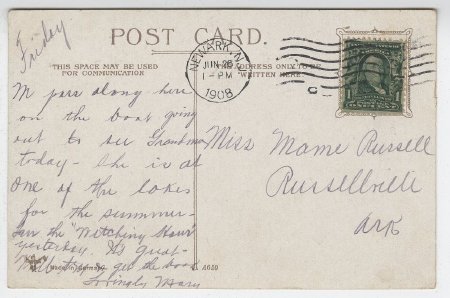 Friday
POST CARD.
THIS SPACE MAY BE USED
FOR COMMUNICATION
ADDRESS ONLY TO BE
WRITTEN HERE
NEWARK, N.
JUN 26
1-PM
1908
pass along here
on the boat going
out to see Grandma
today - She is at
one of the lakes
for the summer-
the "Witching Hour"
yesterday. Its great-
to get the book
Lovingly Mary
A 6090
Miss Mame Russell
Russellville
Ark